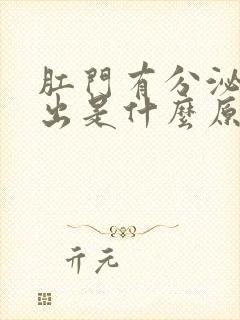 肛門有分泌
出是什麼原
亓元